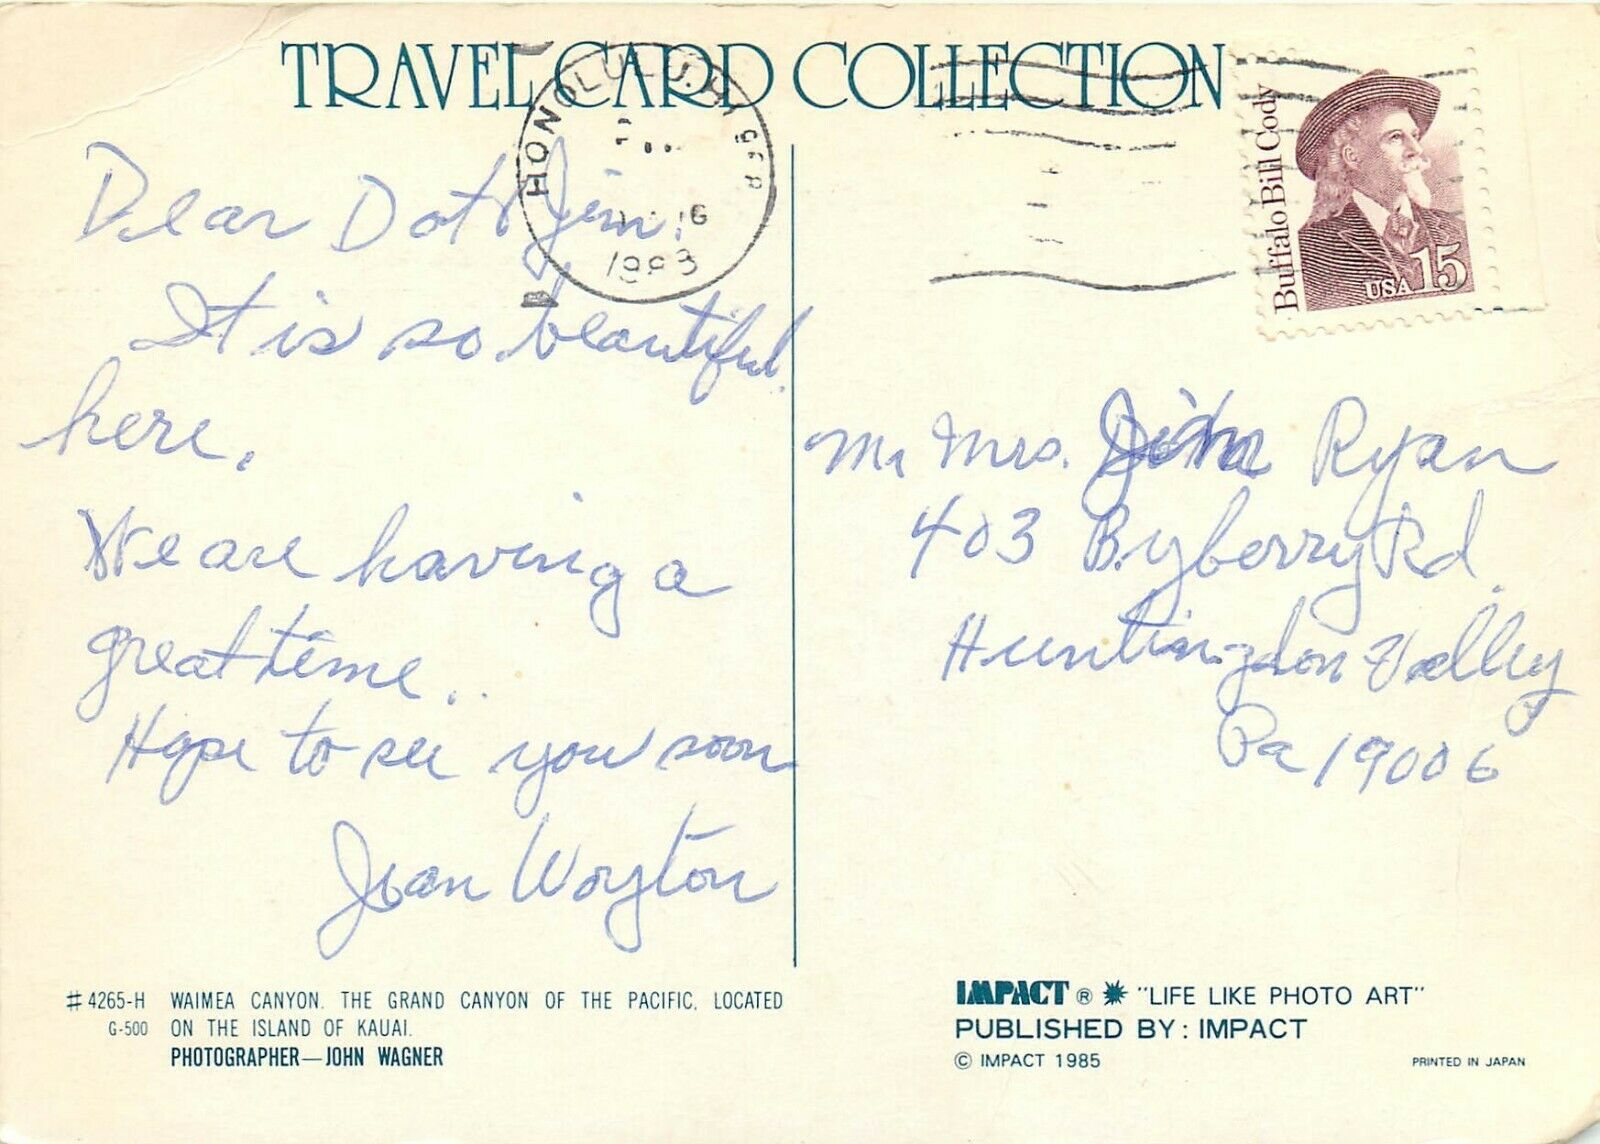 TRAVEL CARD COLLECTION
HONOLULU, HI
1993
Buffalo Bill Cody
USA 15
Dear Dot & Jim,
It is so beautiful
here.
We are having a
great time..
Hope to see you soon
Joan Woyton
Mr Mrs. Jim Ryan
403 Byberry Rd.
Huntingdon Valley
Pa 19006
#4265-H WAIMEA CANYON. THE GRAND CANYON OF THE PACIFIC, LOCATED
G-500 ON THE ISLAND OF KAUAI.
PHOTOGRAPHER—JOHN WAGNER
IMPACT ® "LIFE LIKE PHOTO ART"
PUBLISHED BY: IMPACT
© IMPACT 1985
PRINTED IN JAPAN